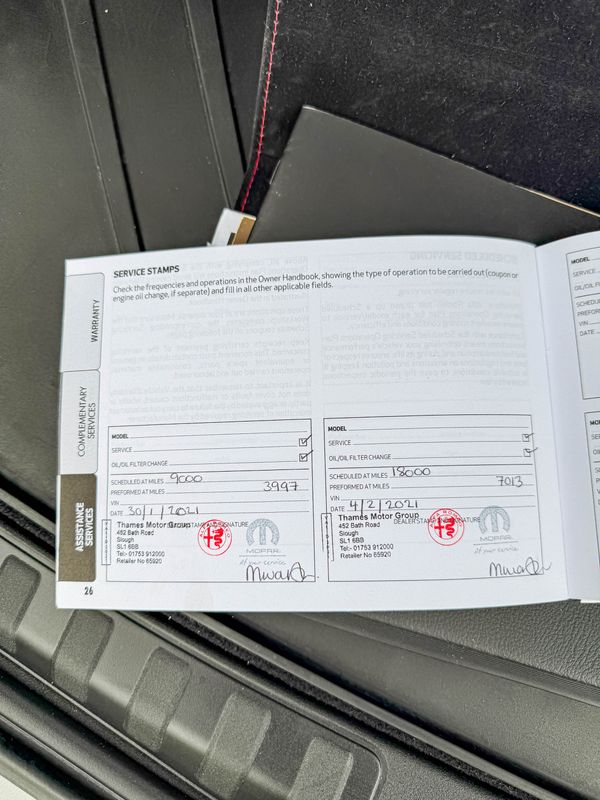 SERVICE STAMPS
Check the frequencies and operations in the Owner Handbook, showing the type of operation to be carried out (coupon or
engine oil change, if separate) and fill in all other applicable fields.
WARRANTY
COMPLEMENTARY
SERVICES
ASSISTANCE
SERVICES
26
MODEL
SERVICE
OIL/OIL FILTER CHANGE
SCHEDULED AT MILES 9000
PREFORMED AT MILES 3997
VIN
DATE 30/1/2021
Thames Motor Group
452 Bath Road
Slough
SL1 6BB
Tel:- 01753 912000
Retailer No 65920
MOPAR
At your service
MODEL
SERVICE
OIL/OIL FILTER CHANGE
SCHEDULED AT MILES 18000
PREFORMED AT MILES 7013
VIN
DATE 4/2/2021
Thames Motor Group
DEALER STAMP AND SIGNATURE
452 Bath Road
Slough
SL1 6BB
Tel:- 01753 912000
Retailer No 65920
MOPAR
At your service
MODEL
SERVICE
OIL/OIL FI
SCHEDU
PREFOR
VIN
DATE